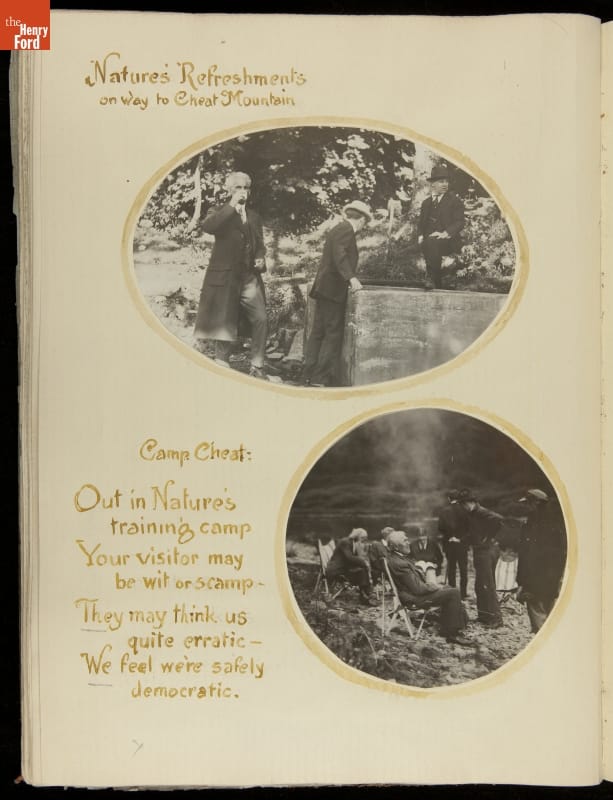 the
Henry
Ford
Nature's Refreshments
on way to Cheat Mountain
Camp Cheat:
Out in Nature's
training camp
Your visitor may
be wit or scamp -
They may think us
quite erratic -
We feel we're safely
democratic.